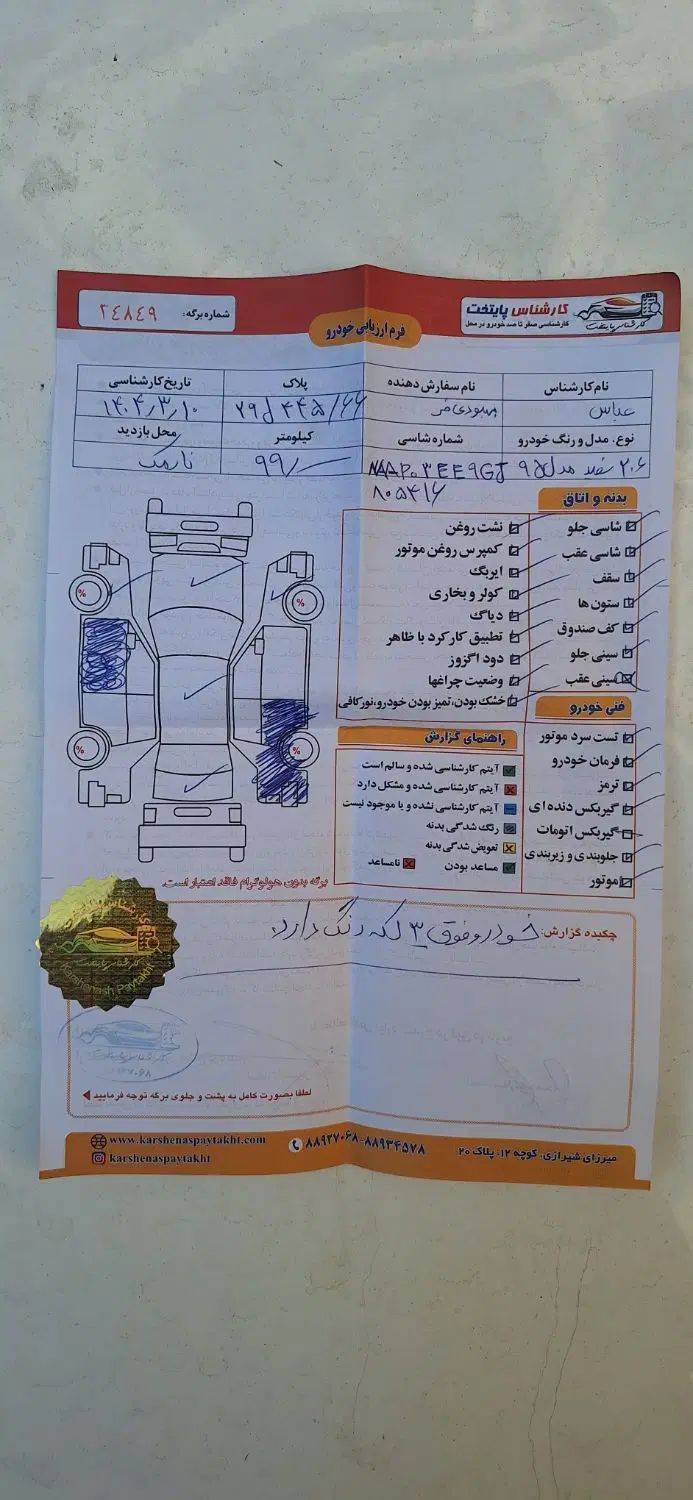 کارشناس پایتخت
کارشناسی صفر تا صد خودرو در محل
کارشناس پایتخت
شماره برگه: ۲۴۸۴۹
فرم ارزیابی خودرو
نام کارشناس
نام سفارش دهنده
پلاک
تاریخ کارشناسی
عباس
۲۹د۴۴۵/۶۶
۱۴۰۴/۳/۱۰
نوع، مدل و رنگ خودرو
شماره شاسی
کیلومتر
محل بازدید
۲۰۶ سفید مدل ۹۵
NAAP03EE9GJ
۸۰۵۴۱۶
۹۹/
نارمک
بدنه و اتاق
شاسی جلو
شاسی عقب
سقف
ستون ها
کف صندوق
سینی جلو
سینی عقب
نشت روغن
کمپرس روغن موتور
ایربگ
کولر و بخاری
دیاگ
تطبیق کارکرد با ظاهر
دود اگزوز
وضعیت چراغها
خشک بودن، تمیز بودن خودرو، نورکافی
فنی خودرو
تست سرد موتور
فرمان خودرو
ترمز
گیربکس دنده ای
گیربکس اتومات
جلوبندی و زیربندی
موتور
راهنمای گزارش
آیتم کارشناسی شده و سالم است
آیتم کارشناسی شده و مشکل دارد
آیتم کارشناسی نشده و یا موجود نیست
رنگ شدگی بدنه
تعویض شدگی بدنه
مساعد بودن
نامساعد
%
%
%
%
برگه بدون هولوگرام فاقد اعتبار است.
چکیده گزارش: خودرو فوق ۳ لکه رنگ دارد.
کارشناس پایتخت
Karshenas Paytakht
لطفا بصورت کامل به پشت و جلوی برگه توجه فرمایید
www.karshenaspaytakht.com
karshenaspaytakht
۸۸۹۲۷۰۶۸-۸۸۹۳۴۵۷۸
میرزای شیرازی، کوچه ۱۲، پلاک ۲۰